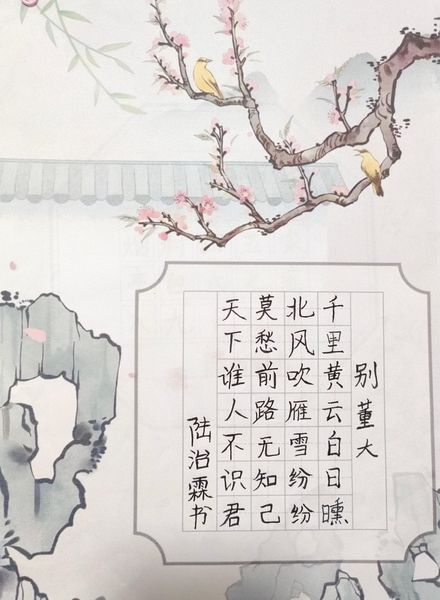 别董大
千里黄云白日曛
北风吹雁雪纷纷
莫愁前路无知己
天下谁人不识君
陆治霖书